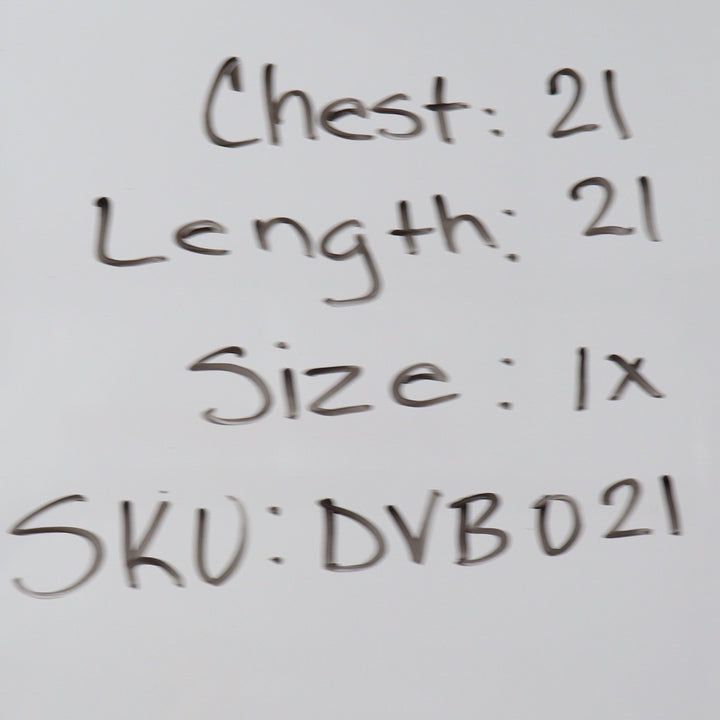 Chest: 21
Length: 21
Size: 1x
SKU: DVB021